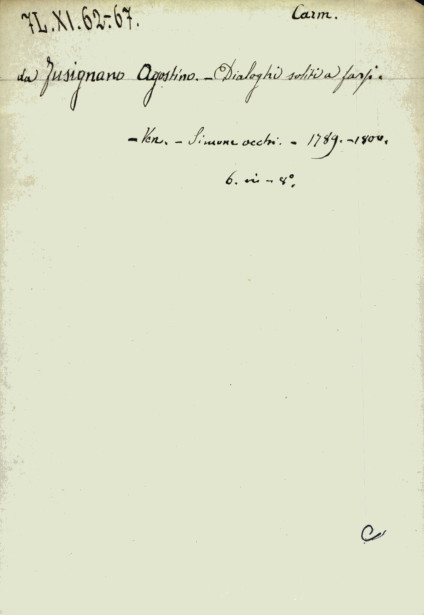 7L.XI.62-67.
Carm.
da Fusignano Agostino. - Dialoghi soliti a farsi.
- Ven. - Simone occhi. - 1789. - 1800.
6. vi - 8°.
C